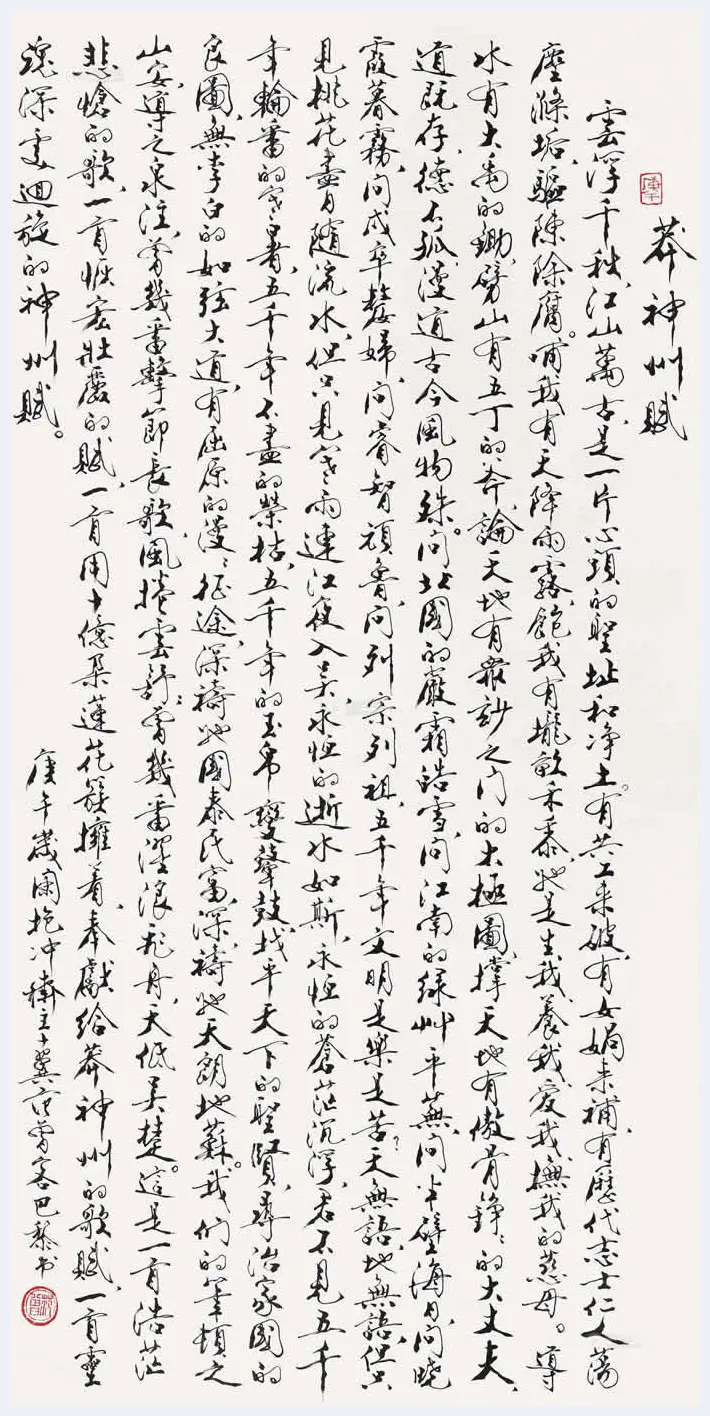 莽神州賦
雲浮千秋,江山萬古,是一片心頭的聖址和净土。有共工来破,有女媧来補,有歷代志士仁人蕩
塵滌垢,驅陳除腐。哺我有天降雨露,飽我有壠畝禾黍,她是生我養我、愛我撫我的慈母。導
水有大禹的鋤,劈山有五丁的斧,論天地有衆妙之门的太極圖,撑天地有傲骨錚錚的大丈夫,
道既存,德不孤,漫道古今風物殊。问北國的嚴霜皓雪,问江南的緑艸平蕪,问半壁海日,问曉
霞暮霧,问戍卒嫠婦,问睿智頑魯,问列宗列祖,五千年文明是樂是苦?天無語,地無語,但只
見桃花盡日隨流水,但只見寒雨連江夜入吴,永恒的逝水如斯,永恒的蒼茫沉浮,君不見五千
年輪番的寒暑,五千年不盡的榮枯,五千年的玉帛變鼙鼓,找平天下的聖賢,尋治家國的
良圖,無李白的如弦大道,有屈原的漫漫征途,深禱她國泰民富,深禱她天朗地蘇。我们的筆頓之
山安,導之泉注,曾幾番擊節長歌,風捲雲舒;曾幾番濁浪飛舟,天低吴楚。這是一首浩茫
悲愴的歌,一首恢宏壯麗的賦,一首用十億朵蓮花簇擁着,奉獻給莽神州的歌賦,一首靈
魂深處迴旋的神州賦。
庚午歲闌抱冲齋主十翼范曾客巴黎书
庚午